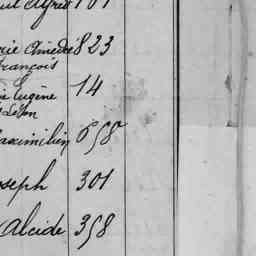 Alfred 101
Amédé 823
François
14
Eugène
Léon
aximilien 658
oseph 301
Alcide 358